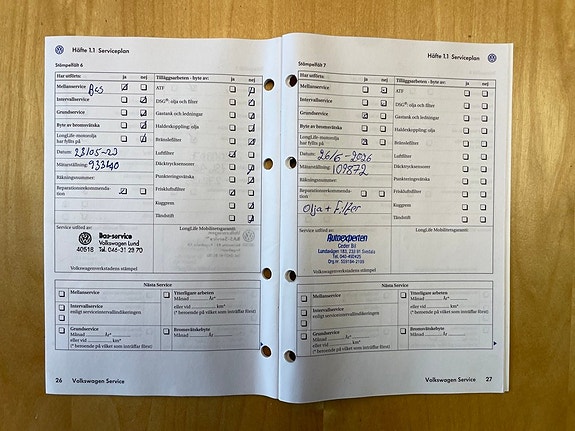 Häfte 1.1 Serviceplan
Stämpelfält 6
Har utförts: ja nej
Tilläggsarbeten - byte av: ja nej
Mellanservice
ATF
Intervallservice
DSG® olja och filter
Grundservice
Gastank och ledningar
Byte av bromsvätska
Haldexkoppling: olja
LongLife-motorolja
har fyllts på
Bränslefilter
Datum: 23/05-23
Luftfilter
Mätarställning:
Däcktrycksensorer
Räkningsnummer:
Punkteringsvätska
Reparationsrekommenda-
tion
Friskluftsfilter
Kuggrem
Tändstift
Service utförd av:
LongLife Mobilitetsgaranti:
Bas-service
Volkswagen Lund
Tel. 046-31 29 70
Volkswagenverkstadens stämpel
Nästa Service
Mellanservice
Ytterligare arbeten
Månad År*
Intervallservice
enligt serviceintervallindikeringen
eller vid km*
(* beroende på vilket som inträffar först)
Grundservice
Månad År*
eller vid km*
(* beroende på vilket som inträffar först)
Bromsvätskebyte
Månad År*
26 Volkswagen Service
Häfte 1.1 Serviceplan
Stämpelfält 7
Har utförts: ja nej
Tilläggsarbeten - byte av: ja nej
Mellanservice
ATF
Intervallservice
DSG® olja och filter
Grundservice
Gastank och ledningar
Byte av bromsvätska
Haldexkoppling: olja
LongLife-motorolja
har fyllts på
Bränslefilter
Datum:
Luftfilter
Mätarställning: 109872
Däcktrycksensorer
Räkningsnummer:
Punkteringsvätska
Reparationsrekommenda-
tion
Friskluftsfilter
Olja + Filter
Kuggrem
Tändstift
Service utförd av:
LongLife Mobilitetsgaranti:
Autoexperten
Ceder Bil
Tel. 040-450425
Volkswagenverkstadens stämpel
Nästa Service
Mellanservice
Ytterligare arbeten
Månad År*
Intervallservice
enligt serviceintervallindikeringen
eller vid km*
(* beroende på vilket som inträffar först)
Grundservice
Månad År*
eller vid km*
(* beroende på vilket som inträffar först)
Bromsvätskebyte
Månad År*
Volkswagen Service 27